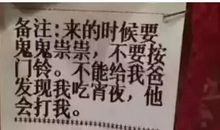 备注:来的时候要
鬼鬼祟祟，不要按
门铃。不能给我爸
发现我吃宵夜，他
会打我。